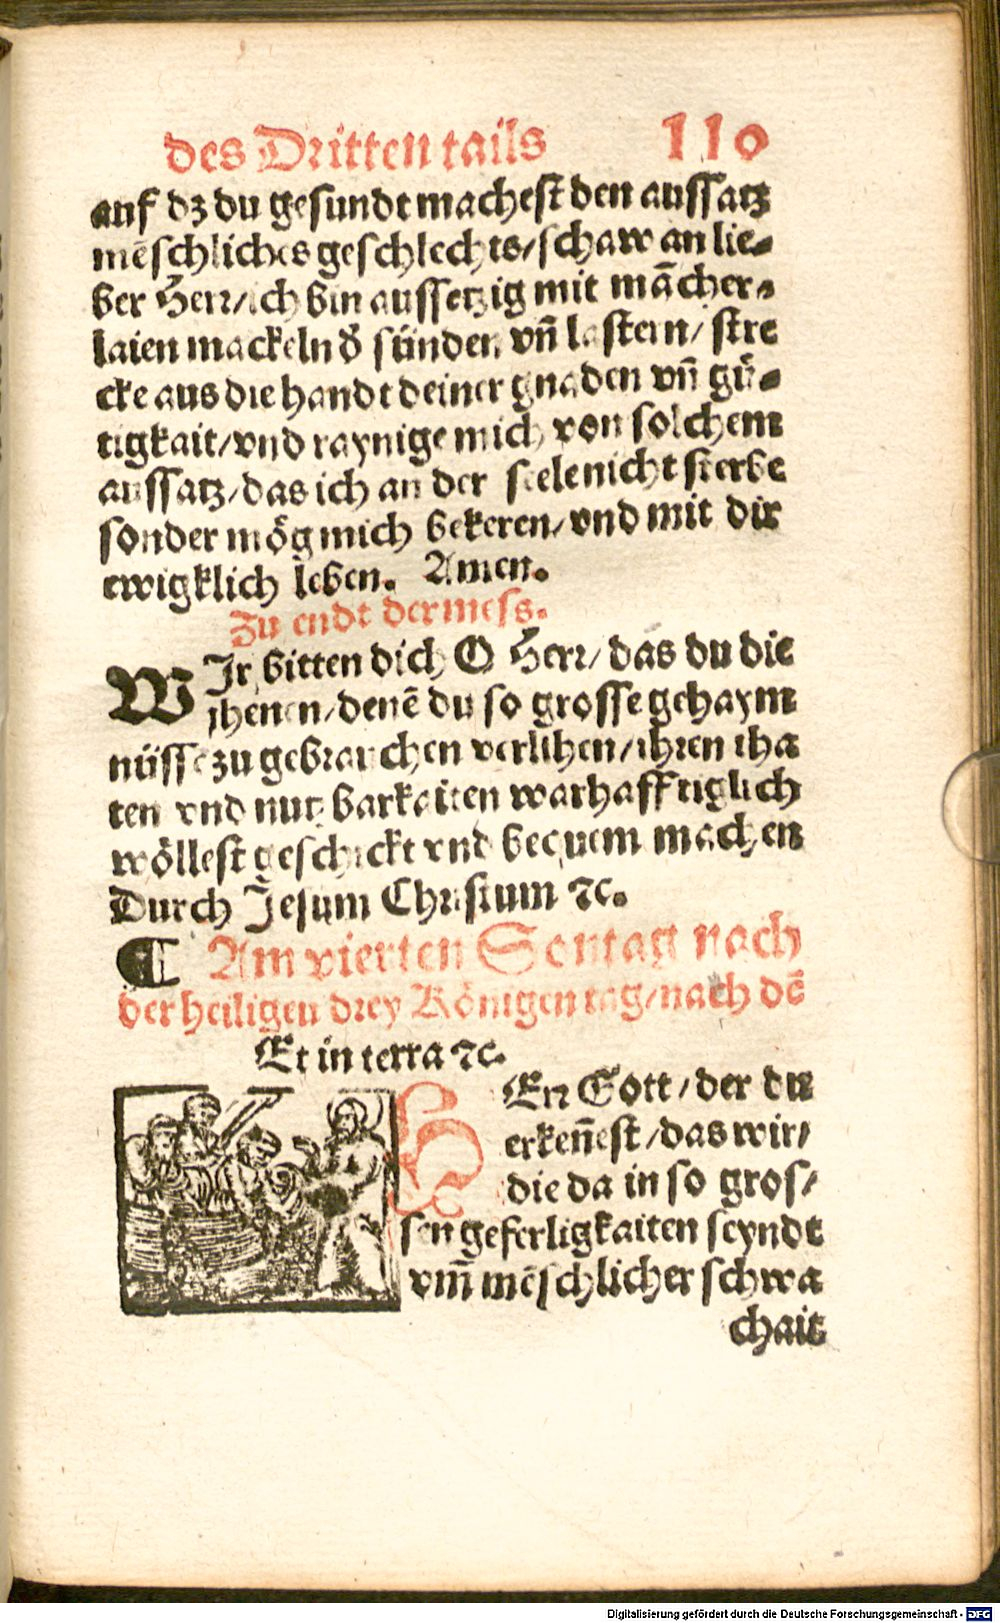 des Dritten tails 110
auf dz du gesundt machest den aussatz
mēschliches geschlechts/schaw an lie-
ber Herr/ich bin aussetzig mit mācher-
laien mackeln d̕ sünden vn̄ lastern/stre
cke aus die handt deiner gnaden vn̄ gü-
tigkait/vnd raynige mich von solchem
aussatz/das ich an der seele nicht sterbe
sonder mög mich bekeren/vnd mit dir
ewigklich leben. Amen.
Zu endt der mess.
WIr bitten dich O Herr/das du die
jhenen/denē du so grosse gehaym
nüsse zu gebrauchen verlihen/ihren tha
ten vnd nutzbarkaiten warhafftiglich
wöllest geschickt vnd bequem machen
Durch Jesum Christum ⁊c.
¶ Am vierten Sontag nach
der heiligen drey Königen tag/nach dē
Et in terra ⁊c.
HErr Gott/der du
erken̄est/das wir/
die da in so gros/
sen geferligkaiten seyndt
vm̄ mēschlicher schwa
chait
Digitalisierung gefördert durch die Deutsche Forschungsgemeinschaft - DFG